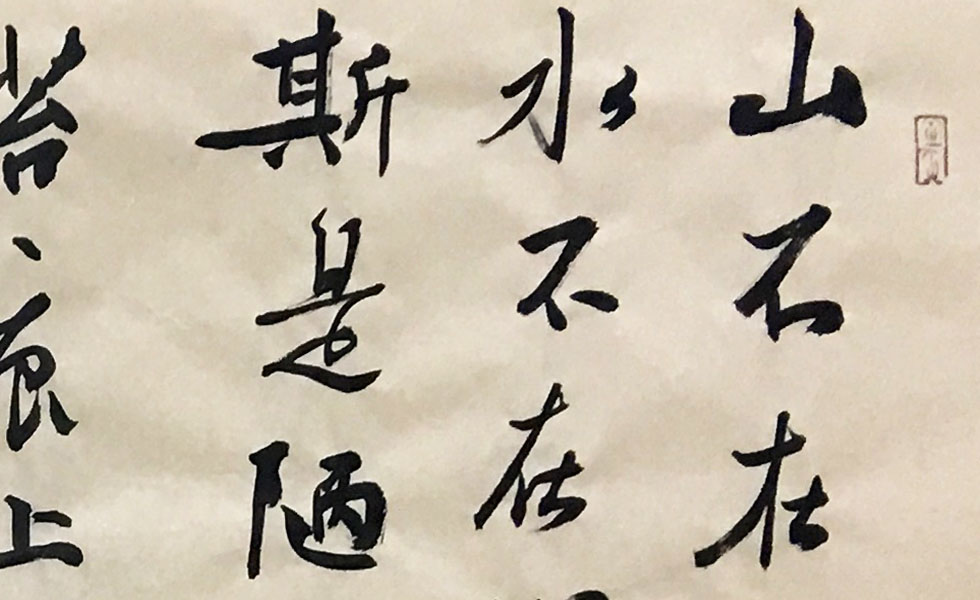 山不在
水不在
斯是陋
苔痕上